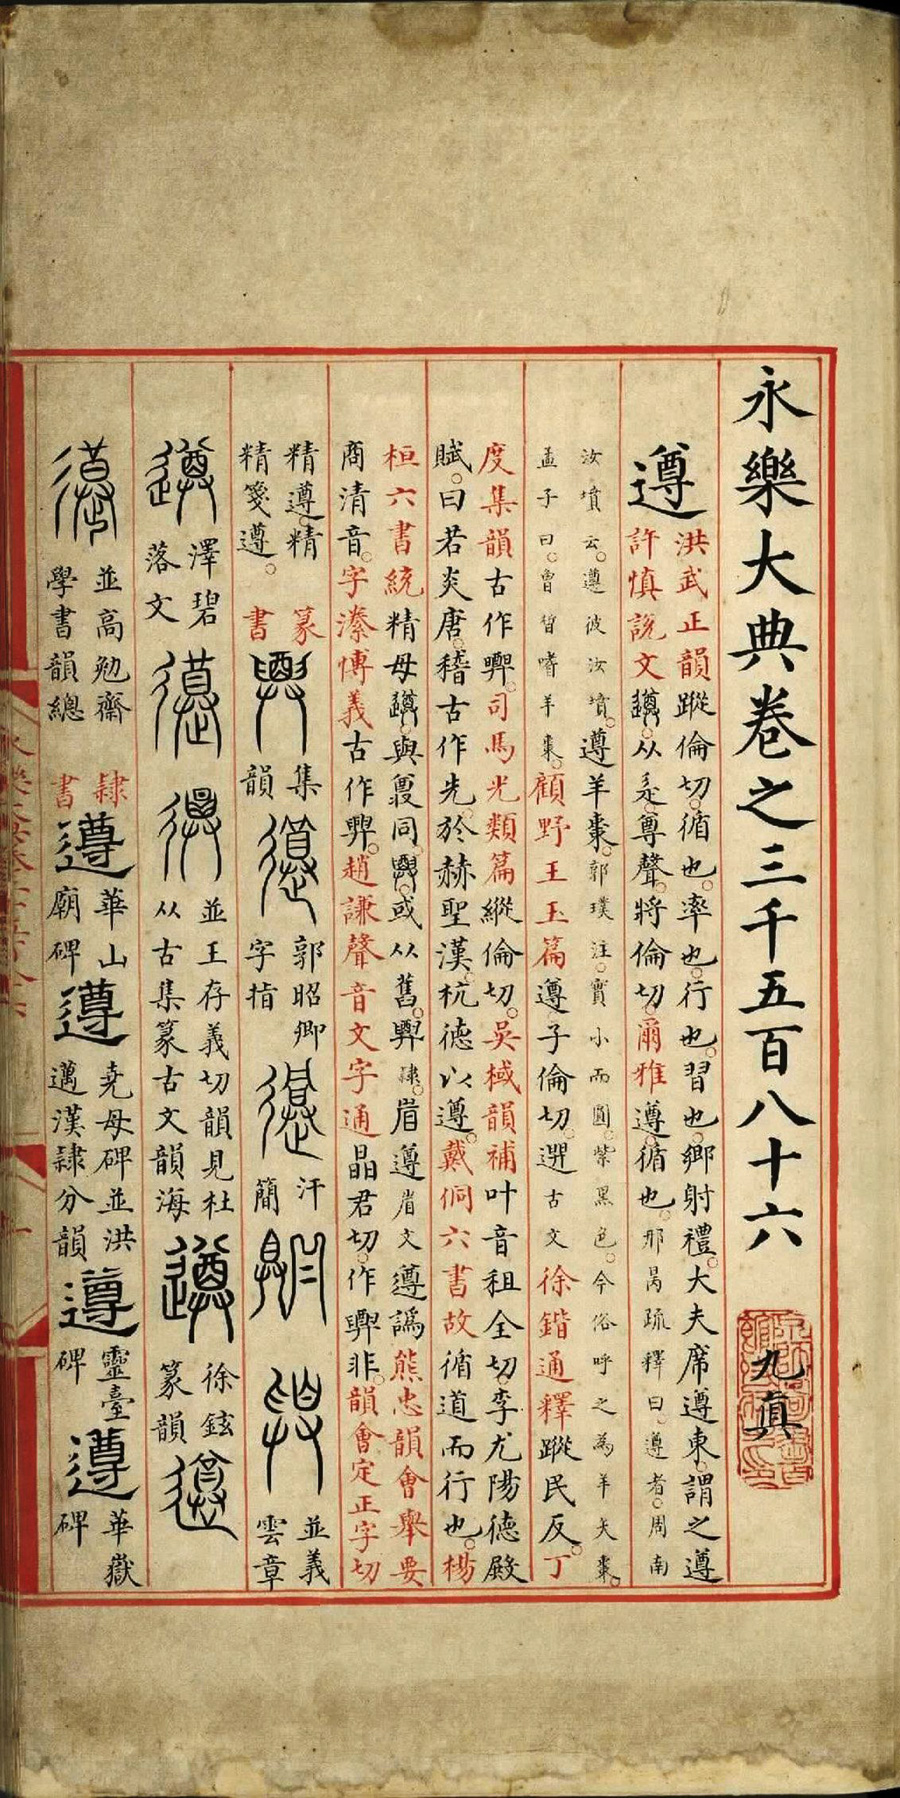 永樂大典卷之三千五百八十六 九真
遵
洪武正韻蹤倫切循也率也行也習也鄉射禮大夫席遵東謂之遵
許慎說文遵从辵尊聲將倫切爾雅遵循也邢昺疏釋曰遵者周南
汝墳云遵彼汝墳遵羊棗郭璞注實小而圓紫黑色今俗呼之為羊矢棗
孟子曰曾皙嗜羊棗顧野王玉篇遵子倫切選古文徐鍇通釋蹤民反丁
度集韻古作司馬光類篇縱倫切吳棫韻補叶音租全切李尤陽德殿
賦曰若炎唐稽古作先於赫聖漢杭德以遵戴侗六書故循道而行也楊
桓六書統精母與同或从舊隸遵文遵譌熊忠韻會舉要
商清音字潫博義古作趙謙聲音文字通晶君切作非韻會定正字切
精遵精
精箋遵
篆書
集韻
郭昭卿字指
汗簡
並義雲章
遵
澤碧落文
並王存義切韻見杜
从古集篆古文韻海
徐鉉篆韻
並高勉齋
學書韻總
隸書
遵
華山廟碑
遵
堯母碑並洪
邁漢隸分韻
遵
靈臺碑
遵
華嶽碑